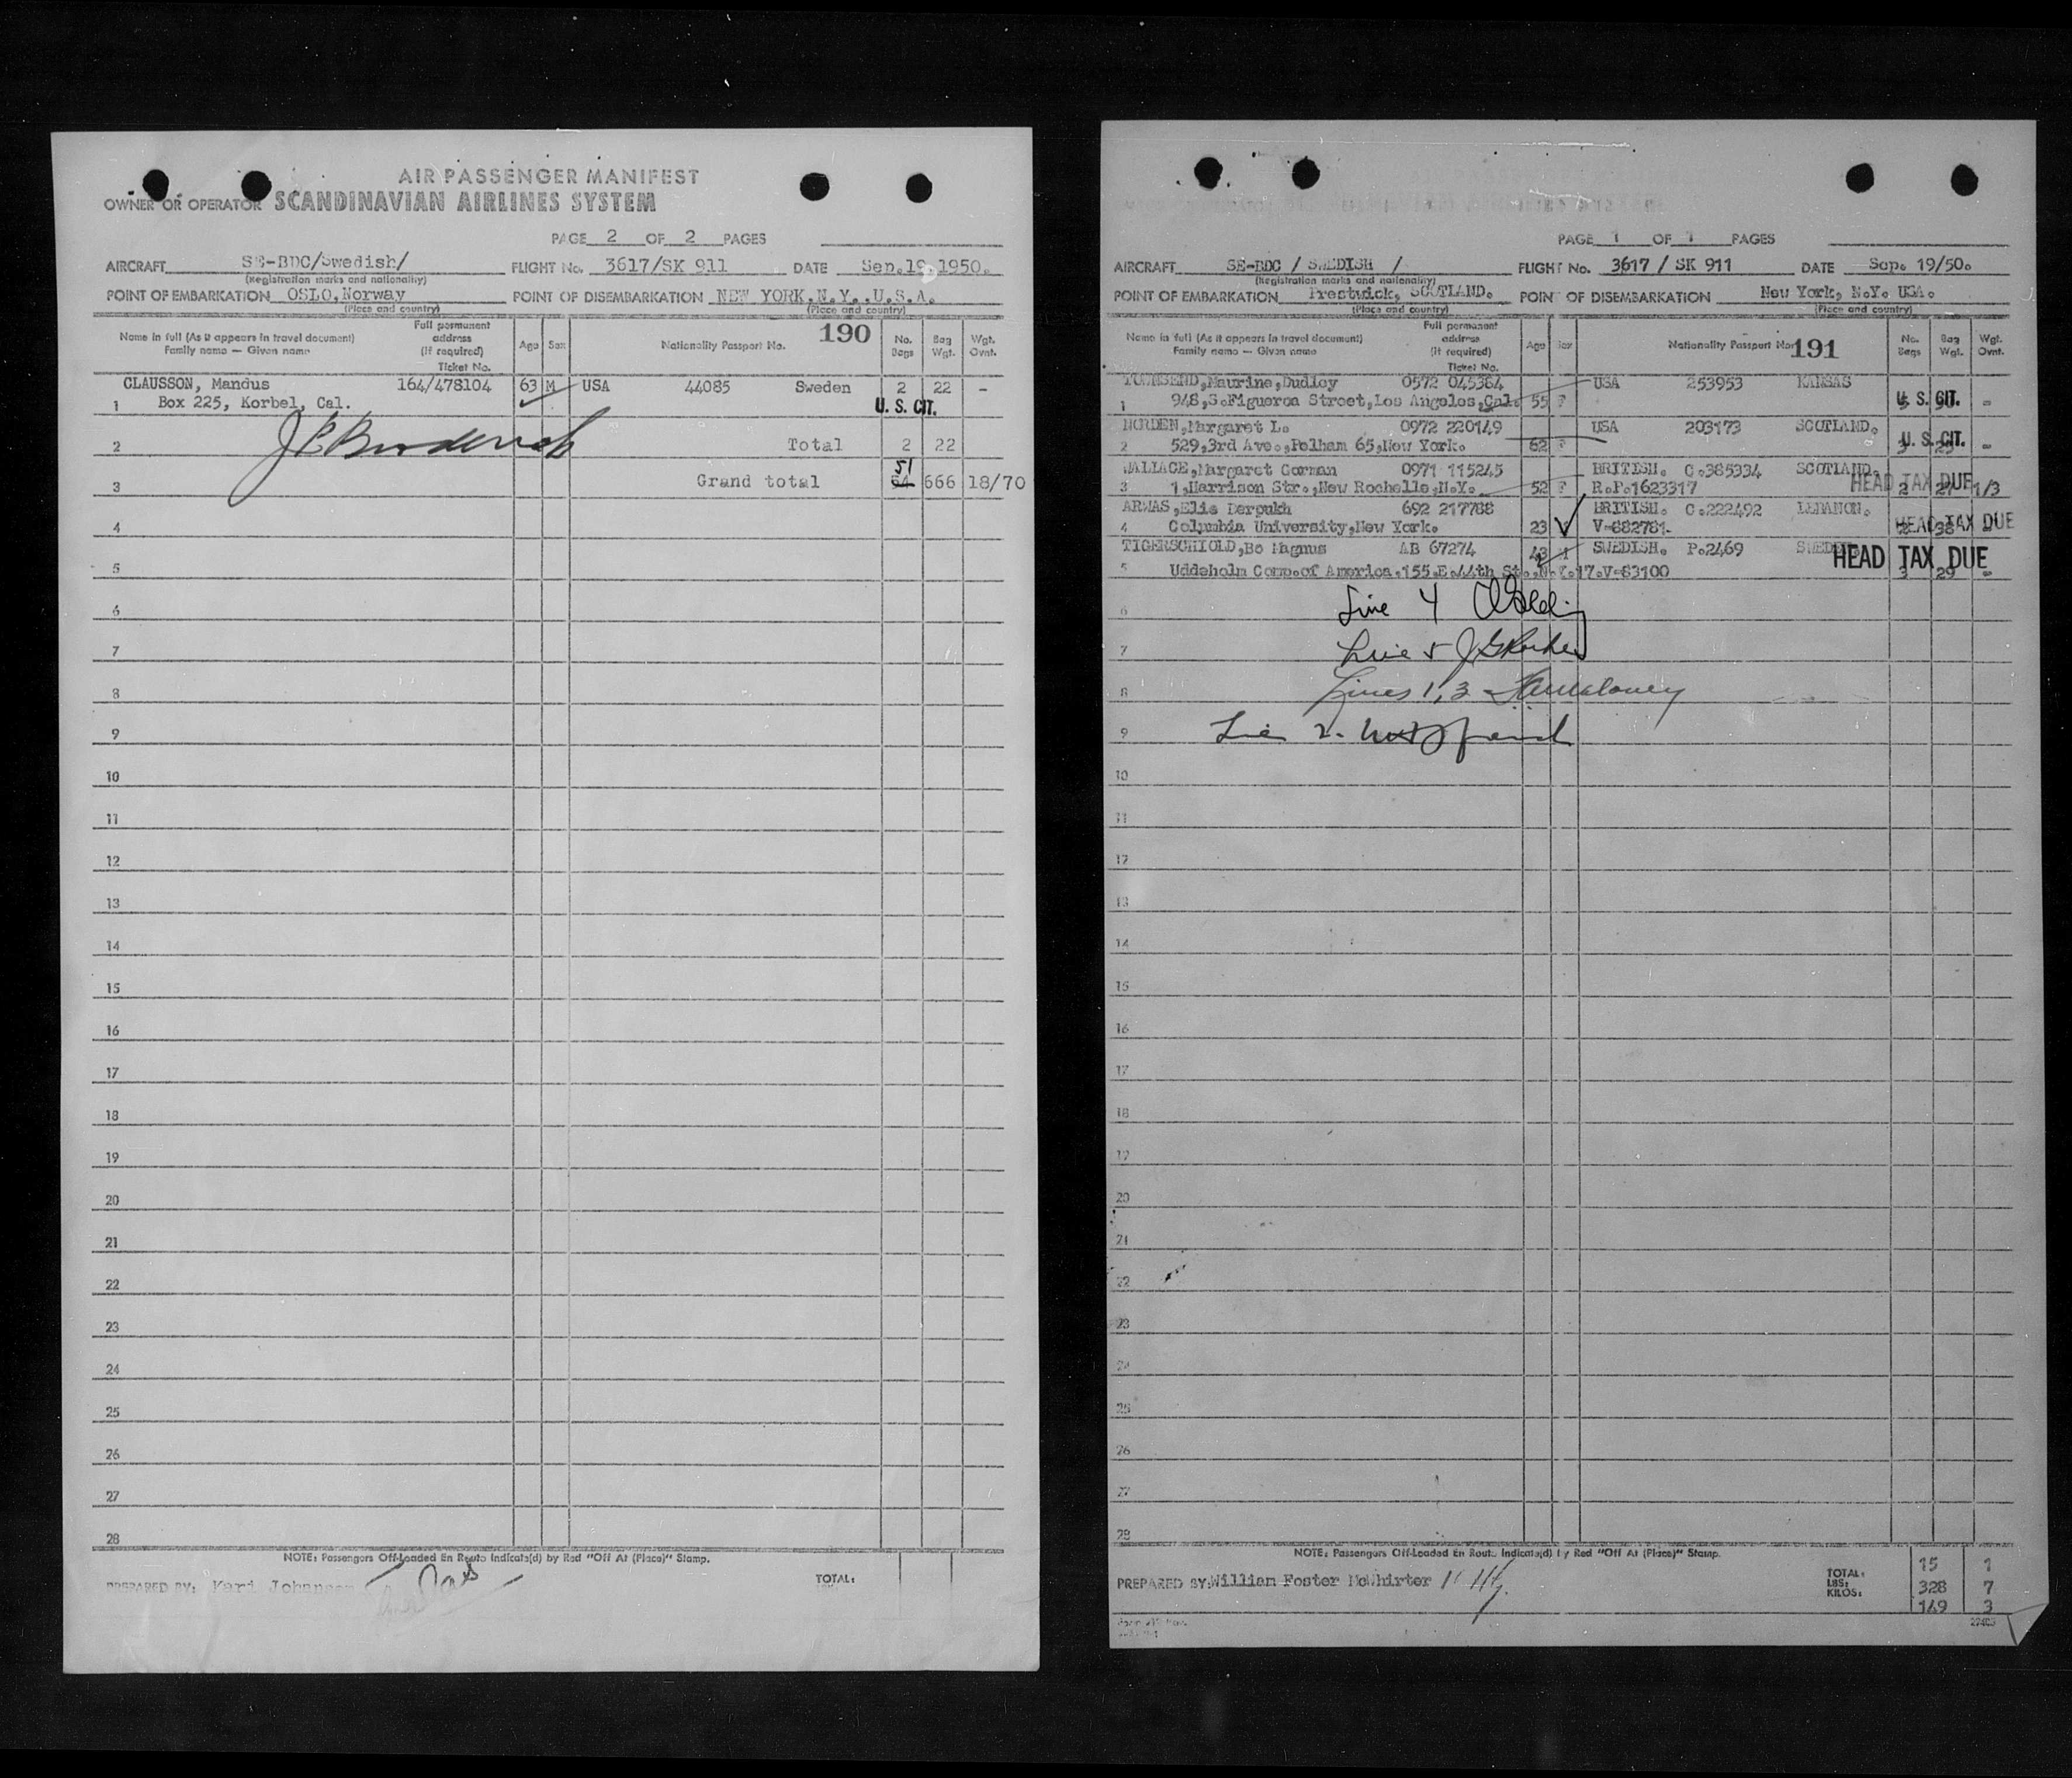 AIR PASSENGER MANIFEST
OWNER OR OPERATOR SCANDINAVIAN AIRLINES SYSTEM
PAGE 2 OF 2 PAGES
AIRCRAFT SE-BDC/Swedish/ FLIGHT No. 3617/SK 911 DATE Sep.19.1950.
(Registration marks and nationality)
POINT OF EMBARKATION OSLO,Norway POINT OF DISEMBARKATION NEW YORK,N.Y.,U.S.A.
(Place and country) (Place and country)
190
Name in full (As it appears in travel document) Family name — Given name Full permanent address (If required) Ticket No. Age Sex Nationality Passport No. No. Bags Bag Wgt. Wgt. Ovnt.
CLAUSSON, Mandus 164/478104 63 M USA 44085 Sweden 2 22 -
1 Box 225, Korbel, Cal. U. S. CIT.
2 Total 2 22
51
3 Grand total 64 666 18/70
4
5
6
7
8
9
10
11
12
13
14
15
16
17
18
19
20
21
22
23
24
25
26
27
28
NOTE: Passengers Off-Loaded En Route Indicate(d) by Red "Off At (Place)" Stamp.
PREPARED BY: Kari Johansen TOTAL:
PAGE 1 OF 1 PAGES
AIRCRAFT SE-BDC / SWEDISH / FLIGHT No. 3617 / SK 911 DATE Sep. 19/50.
(Registration marks and nationality)
POINT OF EMBARKATION Prestwick, SCOTLAND. POINT OF DISEMBARKATION New York, N.Y. USA.
(Place and country) (Place and country)
191
Name in full (As it appears in travel document) Family name — Given name Full permanent address (If required) Ticket No. Age Sex Nationality Passport No. No. Bags Bag Wgt. Wgt. Ovnt.
TOWNSEND,Maurine,Dudley 0572 045384 USA 253953 KANSAS
1 948,S.Figueroa Street,Los Angeles,Cal. 55 F U. S. CIT. -
NORDEN,Margaret L. 0972 220149 USA 203173 SCOTLAND.
2 529,3rd Ave.,Pelham 65,New York. 62 F U. S. CIT. -
WALLACE,Margaret Gorman 0971 115245 BRITISH. C.385334 SCOTLAND.
3 1,Harrison Str.,New Rochelle,N.Y. 52 F R.P.1623317 HEAD TAX DUE 2 27 1/3
ARWAS,Elie Derpukh 692 217788 BRITISH. C.222492 LEBANON.
4 Columbia University,New York. 23 V-882781. HEAD TAX DUE 38 -
TIGERSCHIOLD,Bo Magnus AB 67274 43 M SWEDISH. P.2469 SWEDEN.
5 Uddeholm Comp.of America,155.E.44th St.,N.Y.17.V-83100 HEAD TAX DUE 3 29 -
6 Line 4
7 Line 5
8 Lines 1, 3
9 Line 2.
10
11
12
13
14
15
16
17
18
19
20
21
22
23
24
25
26
27
28
NOTE: Passengers Off-Loaded En Route Indicate(d) by Red "Off At (Place)" Stamp.
PREPARED BY: William Foster McWhirter
TOTAL: 15 1
LBS: 328 7
KILOS: 149 3